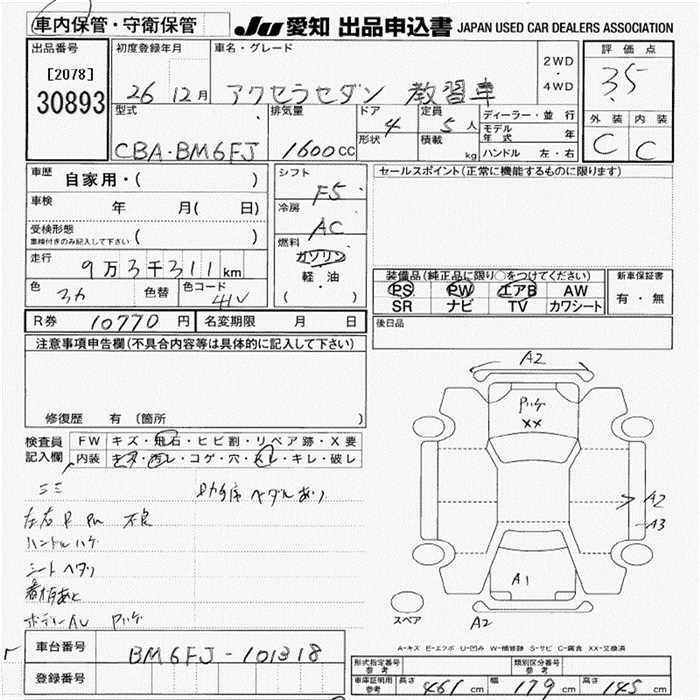 車内保管・守衛保管
JU 愛知 出品申込書 JAPAN USED CAR DEALERS ASSOCIATION
出品番号
[2078]
30893
初度登録年月
26 12月
車名・グレード
アクセラセダン 教習車
2WD
・
4WD
評価点
3.5
外装 内装
C C
型式
CBA-BM6FJ
排気量
1600cc
ドア
4
形状
定員
5人
積載
kg
ディーラー・並行
モデル年式 年
ハンドル 左・右
車歴
自家用・( )
車検
年 月( 日)
受検形態
車検付きのみ記入して下さい ( )
走行
9万3千311km
色 色替
色コード
41V
シフト
F5
冷房
AC
燃料
ガソリン
・
軽・油
( )
セールスポイント(正常に機能するものに限ります)
装備品(純正品に限り○をつけてください)
PS PW エアB AW
SR ナビ TV カワシート
新車保証書
有・無
後日品
R券 10770円 名変期限 月 日
注意事項申告欄(不具合内容等は具体的に記入して下さい)
修復歴 有 (箇所 )
検査員
記入欄
FW キズ・飛石・ヒビ割・リペア跡・X要
内装 キズ・汚レ・コゲ・穴・スレ・キレ・破レ
助手席 ペダルあり
左右 R PW 不良
ハンドルハゲ
シートヘタリ
看板あと
A2
XX
A2
A3
A1
A2
スペア
A-キズ E-エクボ U-凹み W-補修跡 S-サビ C-腐食 XX-交換済
車台番号
BM6FJ-101318
登録番号
形式指定番号
参考
類別区分番号
参考
車庫証明用
参考
長さ 461cm 幅 179cm 高さ 145cm